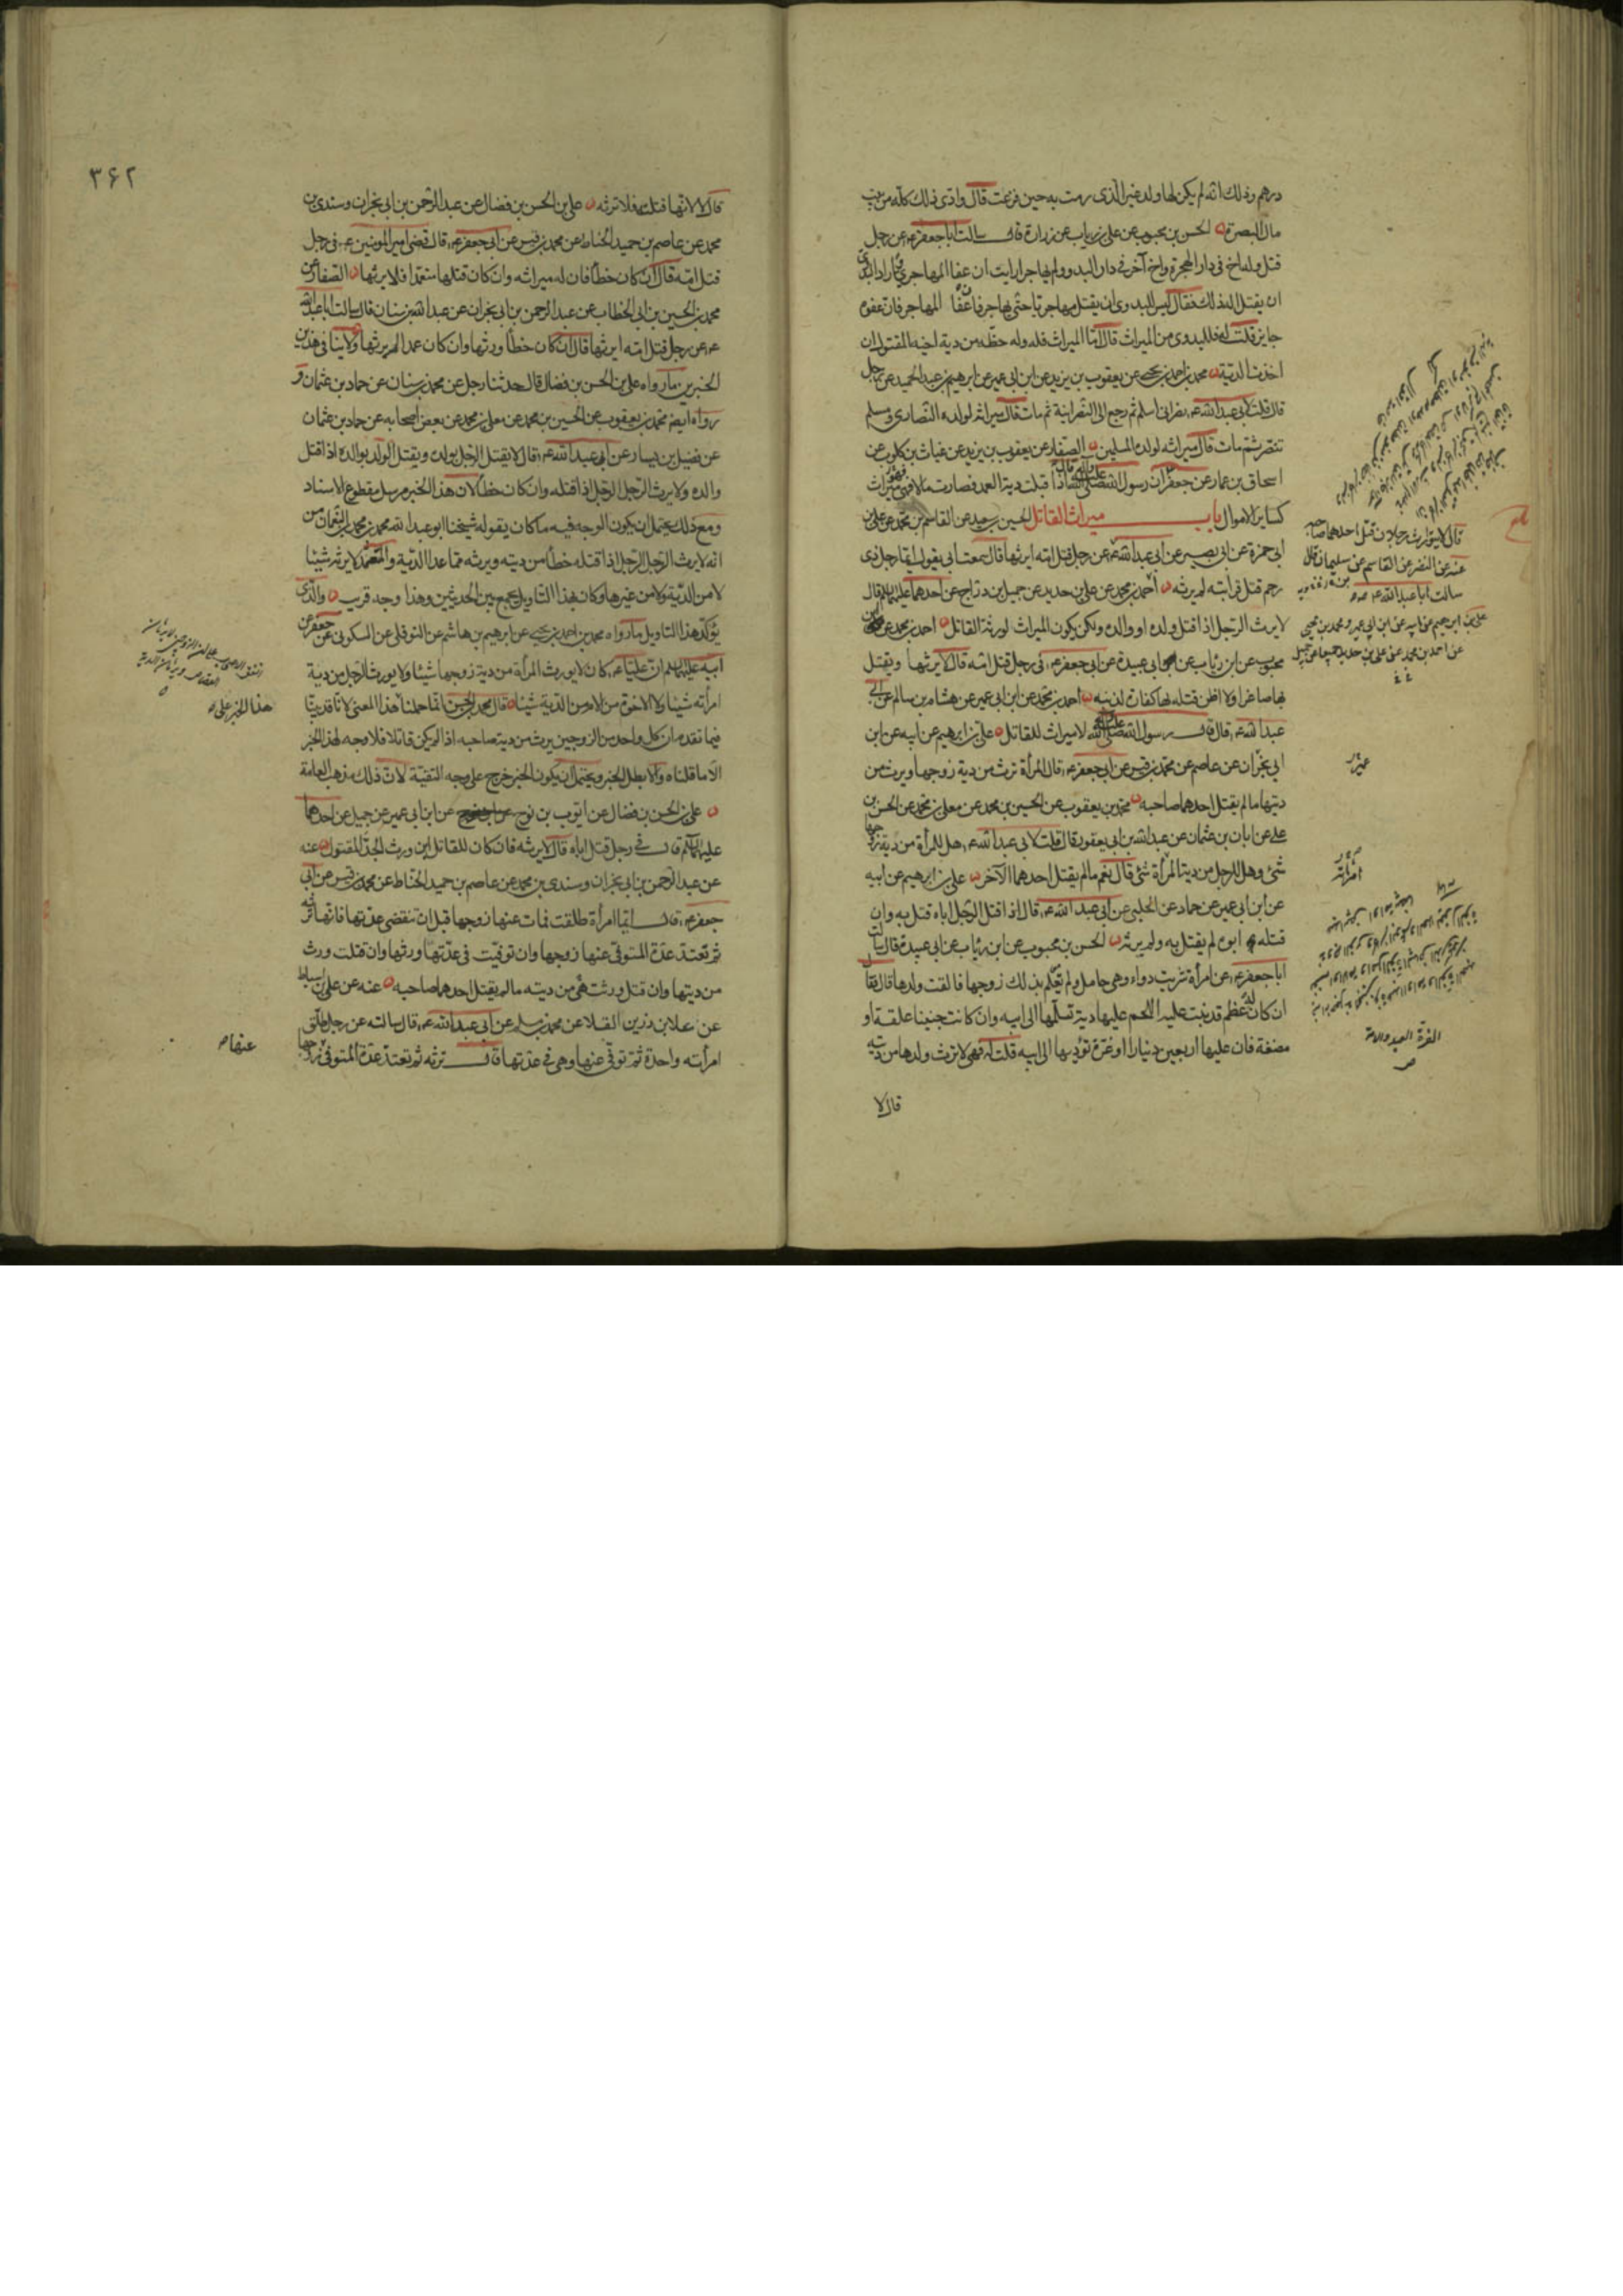 درهم وذلك انه لم يكن لها ولد غير الذى رمت به حين فزعت قال وادى ذلك كله من بيت
مال البصرة الحسن بن محبوب عن على بن رياب عن زرارة قال سالت ابا جعفر ع عن رجل
قتل وله اخ فى دار الهجرة واخ آخر فى دار البدو ولم يهاجر ارايت ان عفا المهاجرى واراد البدوى
ان يقتل اله ذلك فقال ليس للبدوى ان يقتل مهاجريا حتى يهاجر فان عفا المهاجر فان عفوه
جايز قلت له فللبدوى من الميراث قال اما الميراث فله وله حظه من دية اخيه المقتول ان
اخذت الدية محمد بن احمد بن يحيى عن يعقوب بن يزيد عن ابن ابى عمير عن ابرهيم بن عبد الحميد عن رجل
قال قلت لابى عبد الله ع نصرانى اسلم ثم رجع الى النصرانية ثم مات قال ميراثه لولده النصارى ومسلم
تنصر ثم مات قال ميراثه لولده المسلمين الصفار عن يعقوب بن يزيد عن غياث بن كلوب عن
اسحاق بن عمار عن جعفر ان رسول الله صلى الله عليه واله قال اذا قبلت دية العمد فصارت مالا فهى ميراث
كساير الاموال باب ميراث القاتل الحسين بن سعيد عن القاسم بن محمد عن على بن
ابى حمزة عن ابى بصير عن ابى عبد الله ع عن رجل قتل امه ايرثها قال سمعت ابى يقول ايما رجل ذى
رحم قتل قرابته لم يرثه احمد بن محمد عن على بن حديد عن جميل بن دراج عن احدهما عليهما السلم قال
لا يرث الرجل اذا قتل ولده او والده ولكن يكون الميراث لورثة القاتل احمد بن محمد عن
محبوب عن ابن رئاب عن ابى عبيدة عن ابى جعفر ع فى رجل قتل امه قال لا يرثها ويقتل
بها صاغرا ولا اظن قتله لها كفارة لذنبه احمد بن محمد عن ابن ابى عمير عن هشام بن سالم عن ابى
عبد الله ع قال قال رسول الله صلى الله عليه واله لا ميراث للقاتل على بن ابرهيم عن ابيه عن ابن
ابى نجران عن عاصم عن محمد بن قيس عن ابى جعفر ع قال المرأة ترث من دية زوجها ويرث من
ديتها ما لم يقتل احدهما صاحبه محمد بن يعقوب عن الحسين بن محمد عن معلى بن محمد عن الحسن بن
على عن ابان بن عثمان عن عبد الله بن ابى يعفور قال قلت لابى عبد الله ع هل للمرأة من دية زوجها
شئ وهل للرجل من دية المرأة شئ قال نعم ما لم يقتل احدهما الآخر على بن ابرهيم عن ابيه
عن ابن ابى عمير عن حماد عن الحلبى عن ابى عبد الله ع قال اذا قتل الرجل اباه قتل به وان
قتله ابوه لم يقتل به ولم يرثه الحسن بن محبوب عن ابن رئاب عن ابى عبيدة قال سالت
ابا جعفر ع عن امرأة شربت دواء وهى حامل ولم يعلم بذلك زوجها فالقت ولدها قال فقال
ان كان له عظم قد نبت عليه اللحم عليها دية تسلمها الى ابيه وان كانت جنينا علقة او
مضغة فان عليها اربعين دينارا او غرة تؤديها الى ابيه قلت له فهى لا ترث ولدها من ديته
قال لا
قال لا يتوارث رجلان قتل احدهما صاحبه
عنه عن النضر عن القاسم عن سليمان قال
سالت ابا عبد الله ع
على بن ابرهيم عن ابيه عن ابن ابى عمير ومحمد بن يحيى
عن احمد بن محمد عن على بن حديد جميعا عن جميل
امرأته
الغرة العبد والامة
٣۶٢
قال لا لانها قتلته فلا ترثه على بن الحسن بن فضال عن عبد الرحمن بن ابى نجران وسندى بن
محمد عن عاصم بن حميد الحناط عن محمد بن قيس عن ابى جعفر ع قال قضى امير المومنين ع فى رجل
قتل امه قال ان كان خطأ فان له ميراثه وان كان قتلها متعمدا فلا يرثها الصفار عن
محمد بن الحسين بن ابى الخطاب عن عبد الرحمن بن ابى نجران عن عبد الله بن سنان قال سالت ابا عبد الله
ع عن رجل قتل امه ايرثها قال ان كان خطأ ورثها وان كان عمدا لم يرثها ولا ينافى هذين
الخبرين ما رواه على بن الحسن بن فضال قال حدثنا رجل عن محمد بن سنان عن حماد بن عثمان و
رواه ايضا محمد بن يعقوب عن الحسين بن محمد عن معلى بن محمد عن بعض اصحابه عن حماد بن عثمان
عن فضيل بن يسار عن ابى عبد الله ع قال لا يقتل الرجل بولده ويقتل الولد بوالده اذا قتل
والده ولا يرث الرجل الرجل اذا قتله وان كان خطأ لان هذا الخبر مرسل مقطوع الاسناد
ومع ذلك يحتمل ان يكون الوجه فيه ما كان يقوله شيخنا ابو عبد الله محمد بن محمد بن النعمان من
انه لا يرث الرجل الرجل اذا قتله خطأ من ديته ويرثه مما عدا الدية والمتعمد لا يرثه شيئا
لا من الدية ولا من غيرها وكان بهذا التاويل يجمع بين الحديثين وهذا وجه قريب والذى
يؤكد هذا التاويل ما رواه محمد بن احمد بن يحيى عن ابرهيم بن هاشم عن النوفلى عن السكونى عن جعفر عن
ابيه عليهما السلم ان عليا ع كان لا يورث المرأة من دية زوجها شيئا ولا يورث الرجل من دية
امرأته شيئا ولا الاخوة من الام من الدية شيئا قال محمد بن الحسن انما حملنا هذا المعنى لانا قد بينا
فيما تقدم ان كل واحد من الزوجين يرث من دية صاحبه اذا لم يكن قاتلا فلا وجه لهذا الخبر
الا ما قلناه والا بطل الخبر ويحتمل ان يكون الخبر خرج على وجه التقية لان ذلك مذهب العامة
على بن الحسن بن فضال عن ايوب بن نوح عن ابن ابى عمير عن جميل عن احدهما
عليهما السلم قال فى رجل قتل اباه قال لا يرثه فان كان للقاتل ابن ورث الجد المقتول عنه
عن عبد الرحمن بن ابى نجران وسندى بن محمد عن عاصم بن حميد الحناط عن محمد بن قيس عن ابى
جعفر ع قال ايما امرأة طلقت فمات عنها زوجها قبل ان تنقضى عدتها فانها ترثه
ثم تعتد عدة المتوفى عنها زوجها وان توفيت فى عدتها ورثها وان قتلت ورث
من ديتها وان قتل ورثت هى من ديته ما لم يقتل احدهما صاحبه عنه عن على بن اسباط
عن علا بن رزين القلا عن محمد بن مسلم عن ابى عبد الله ع قال سالته عن رجل طلق
امرأته واحدة ثم توفى عنها وهى فى عدتها قال ترثه ثم تعتد عدة المتوفى زوجها
هذا الخبر على
عنها